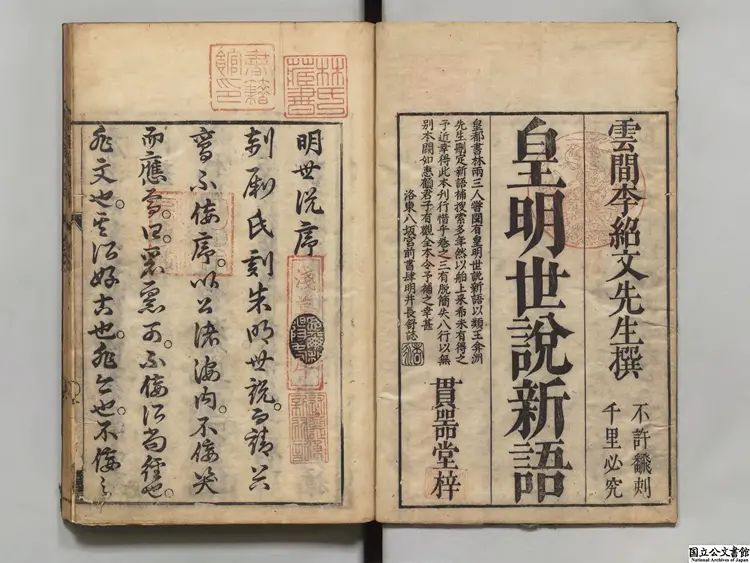 雲間李紹文先生撰
不許飜刻
千里必究
皇明世說新語
皇都書林兩三人嘗聞有皇明世說新語以類王弇洲
先生刪定新語補搜索多年然以舶上來希未有得之
予近幸得此本刊行惜乎卷之三有脫簡失八行以無
別本闕如惠顧君子有觀全本令予補之幸甚
洛東八坂宮前書肆明井長舒誌
貫器堂梓
林氏
藏書
書籍
館印
明世說序
剞劂氏刻朱明世說而請
不佞序。以公諸海内。不佞笑
而應 曰。 不佞所尚經也。
非文也。其所好古也。非今也。不佞
国立公文書館
National Archives of Japan